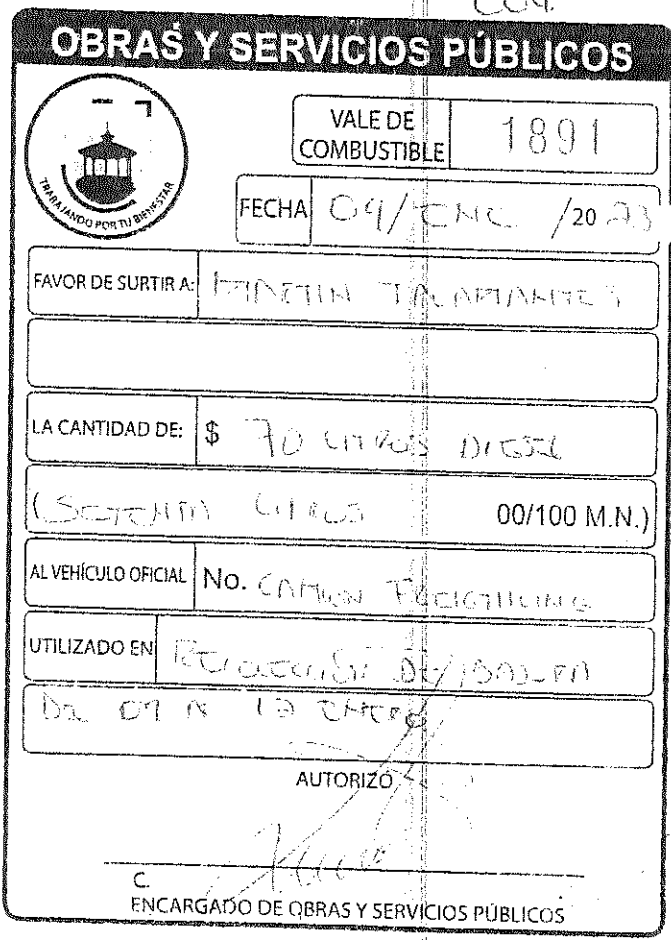 OBRAS Y SERVICIOS PÚBLICOS
TRABAJANDO POR TU BIENESTAR
VALE DE COMBUSTIBLE 1891
FECHA 09/ENE /20 23
FAVOR DE SURTIR A: MARTIN
LA CANTIDAD DE: $ 70 LITROS DIESEL
(SETENTA LITROS 00/100 M.N.)
AL VEHÍCULO OFICIAL No. CAMION
UTILIZADO EN RECOLECCIÓN DE BASURA
DEL 09 A ENERO
AUTORIZÓ
C.
ENCARGADO DE OBRAS Y SERVICIOS PÚBLICOS